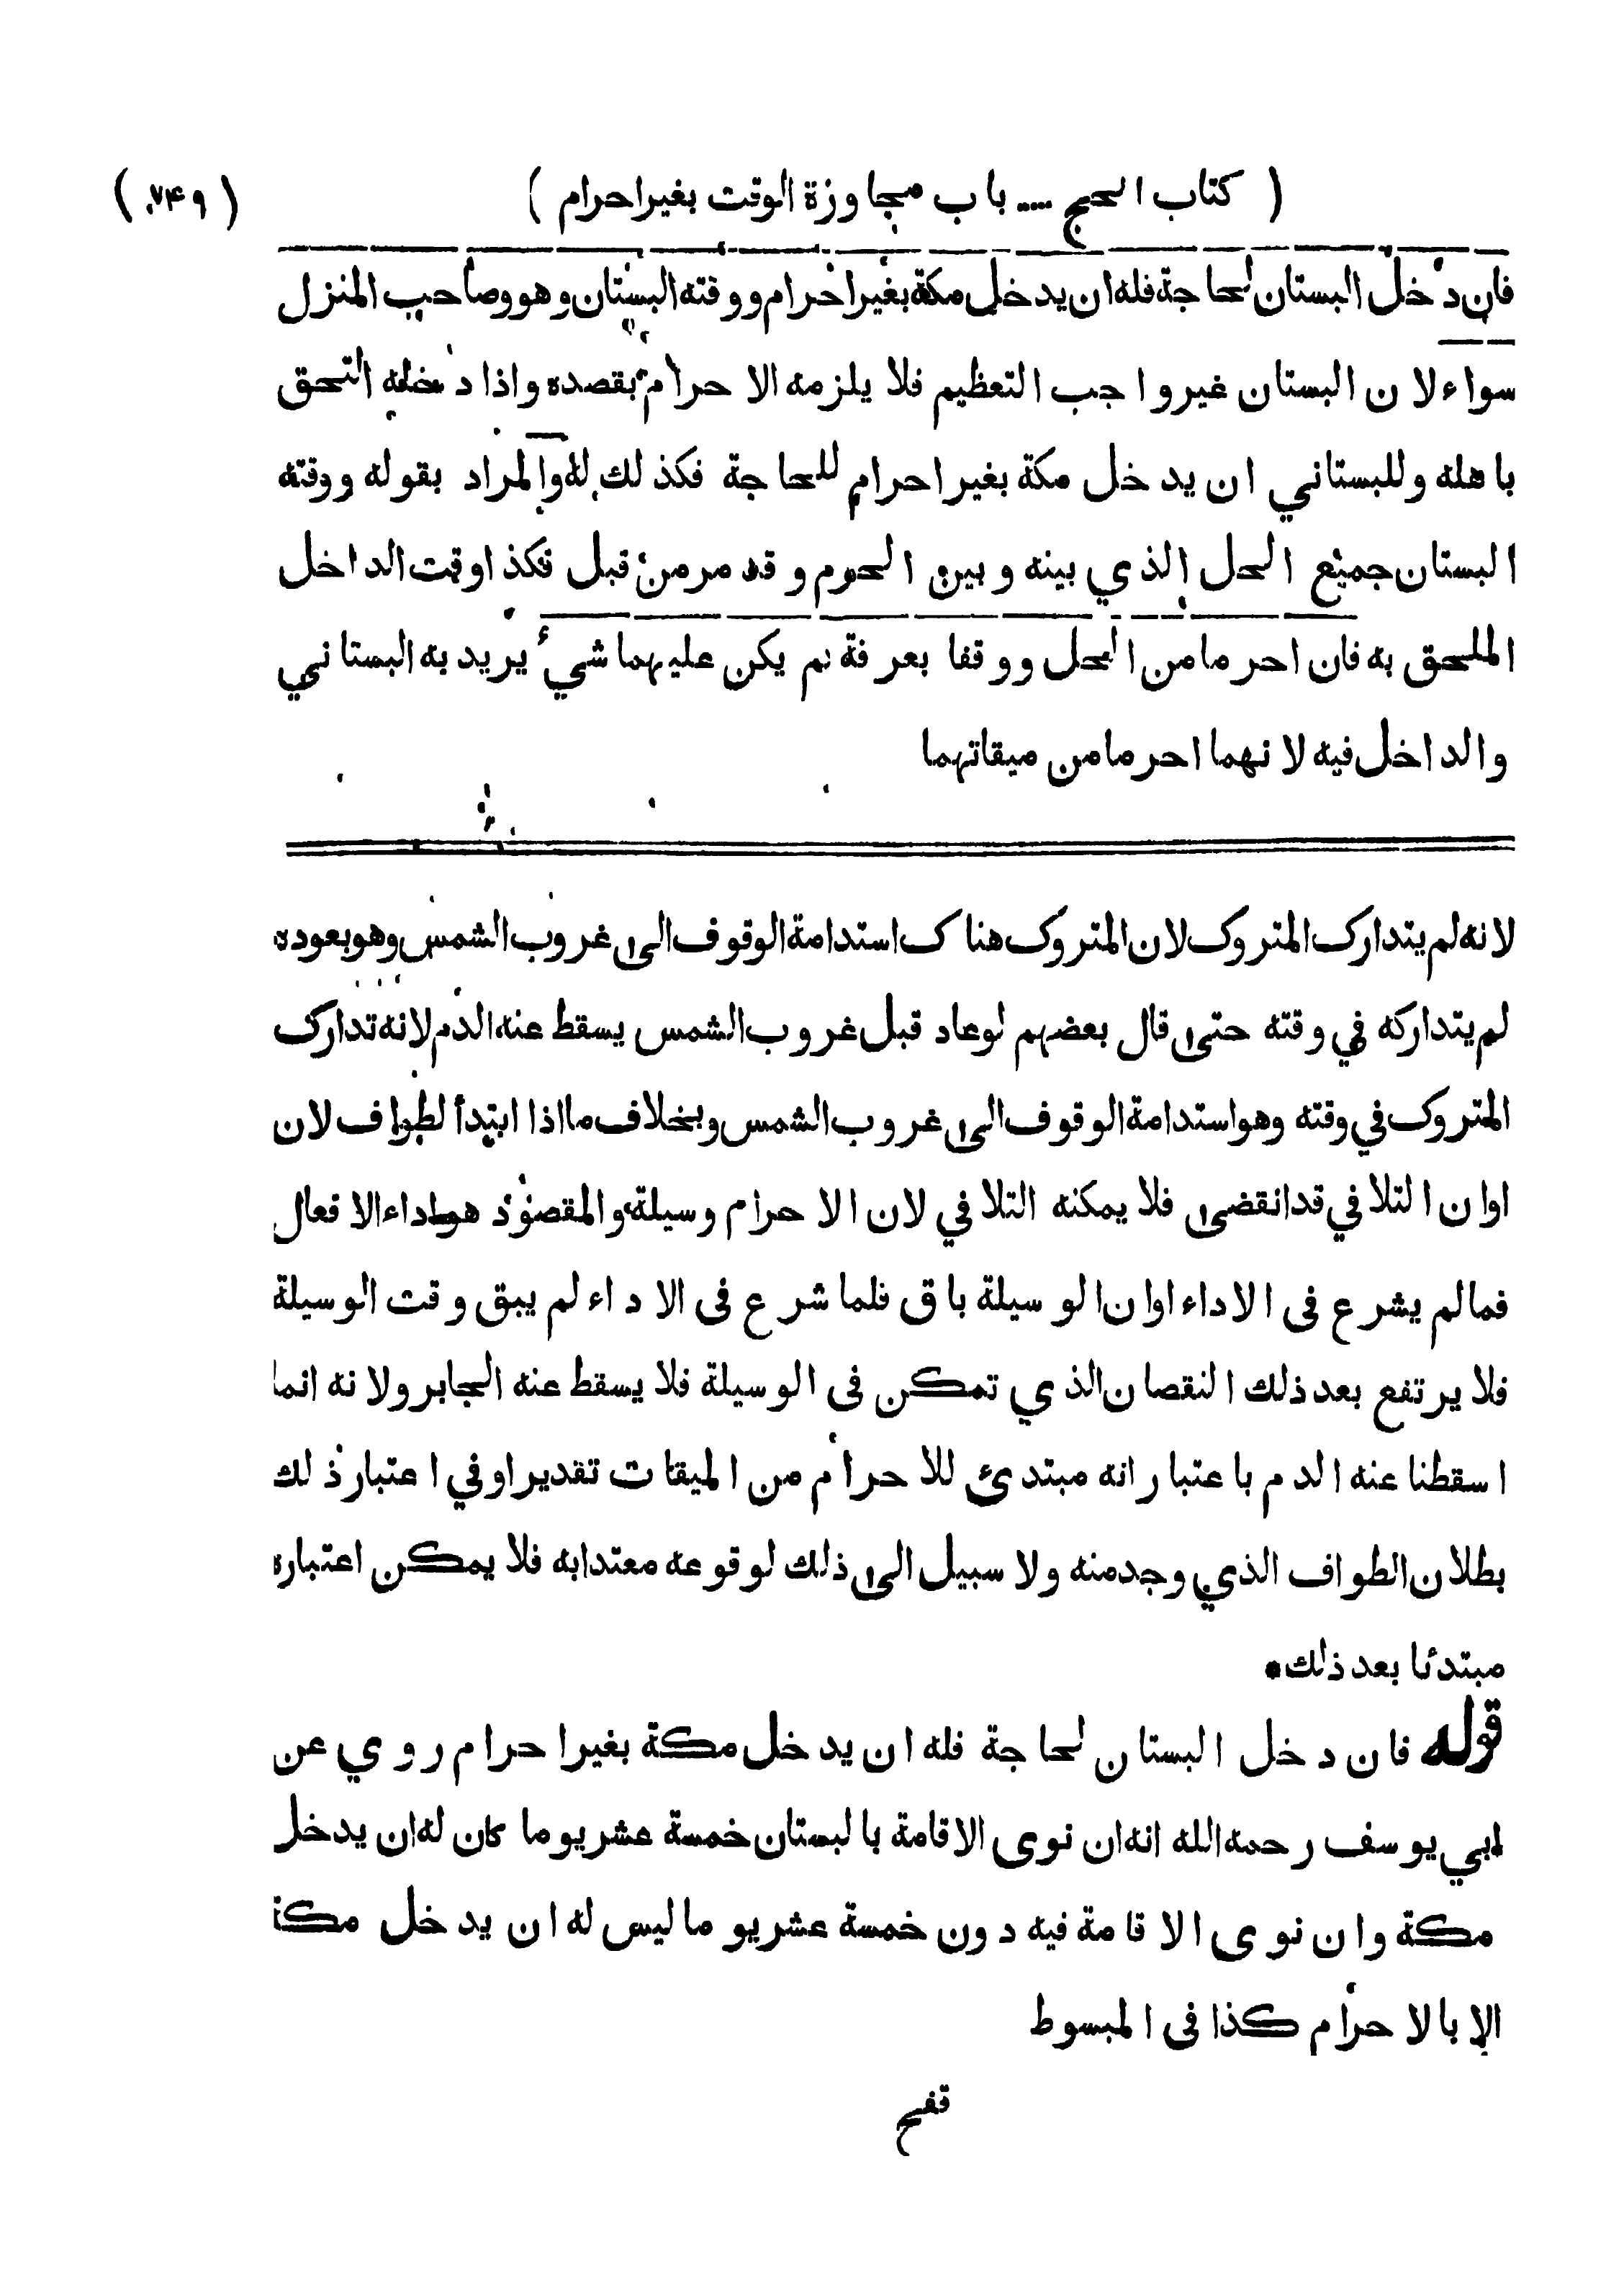 ( كتاب الحج .... باب مجاوزة الوقت بغير احرام ) ( ٧۴٩ )
فان دخل البستان لحاجة فله ان يدخل مكة بغير احرام ووقته البستان وهو وصاحب المنزل
سواء لان البستان غير واجب التعظيم فلا يلزمه الاحرام بقصده واذا دخله التحق
باهله وللبستاني ان يدخل مكة بغير احرام للحاجة فكذلك له والمراد بقوله ووقته
البستان جميع الحل الذي بينه وبين الحرم وقد مر من قبل فكذا وقت الداخل
الملحق به فان احرما من الحل ووقفا بعرفة لم يكن عليهما شيء يريد به البستاني
والداخل فيه لانهما احرما من ميقاتهما
لانه لم يتدارك المتروك لان المتروك هناك استدامة الوقوف الى غروب الشمس وهو بعوده
لم يتداركه في وقته حتى قال بعضهم لو عاد قبل غروب الشمس يسقط عنه الدم لانه تدارك
المتروك في وقته وهو استدامة الوقوف الى غروب الشمس وبخلاف ما اذا ابتدأ لطواف لان
اوان التلافي قد انقضى فلا يمكنه التلافي لان الاحرام وسيلة والمقصود هو اداء الافعال
فما لم يشرع فى الاداء اوان الوسيلة باق فلما شرع فى الاداء لم يبق وقت الوسيلة
فلا يرتفع بعد ذلك النقصان الذي تمكن فى الوسيلة فلا يسقط عنه الجابر ولانه انما
اسقطنا عنه الدم باعتبار انه مبتدئ للاحرام من الميقات تقديرا وفي اعتبار ذلك
بطلان الطواف الذي وجد منه ولا سبيل الى ذلك لوقوعه معتدا به فلا يمكن اعتباره
مبتدئا بعد ذلك •
قوله فان دخل البستان لحاجة فله ان يدخل مكة بغير احرام روي عن
ابي يوسف رحمه الله انه ان نوى الاقامة بالبستان خمسة عشر يوما كان له ان يدخل
مكة وان نوى الاقامة فيه دون خمسة عشر يوما ليس له ان يدخل مكة
الا بالاحرام كذا فى المبسوط